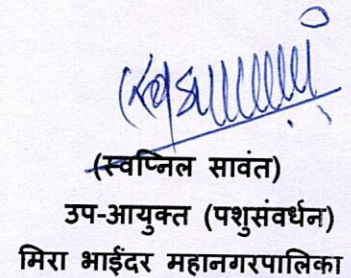 (स्वप्निल सावंत)
उप-आयुक्त (पशुसंवर्धन)
मिरा भाईंदर महानगरपालिका